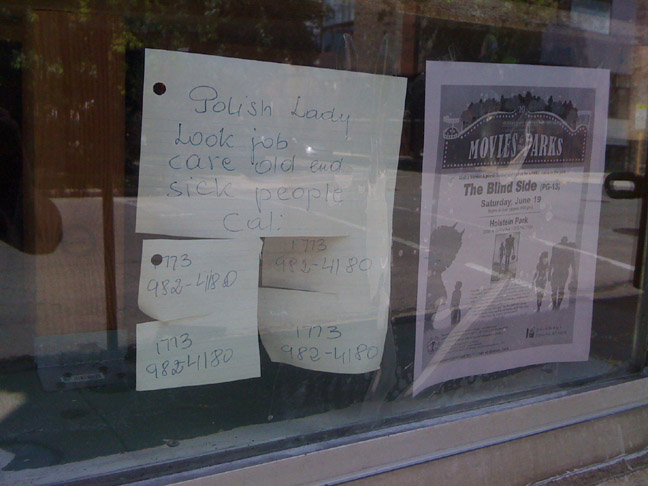 Polish Lady
Look job
care old end
sick people
Cal:
1773
982-4180
1773
982-4180
1773
982-4180
1773
982-4180
MOVIES PARKS
The Blind Side (PG-13)
Saturday, June 19
Holstein Park